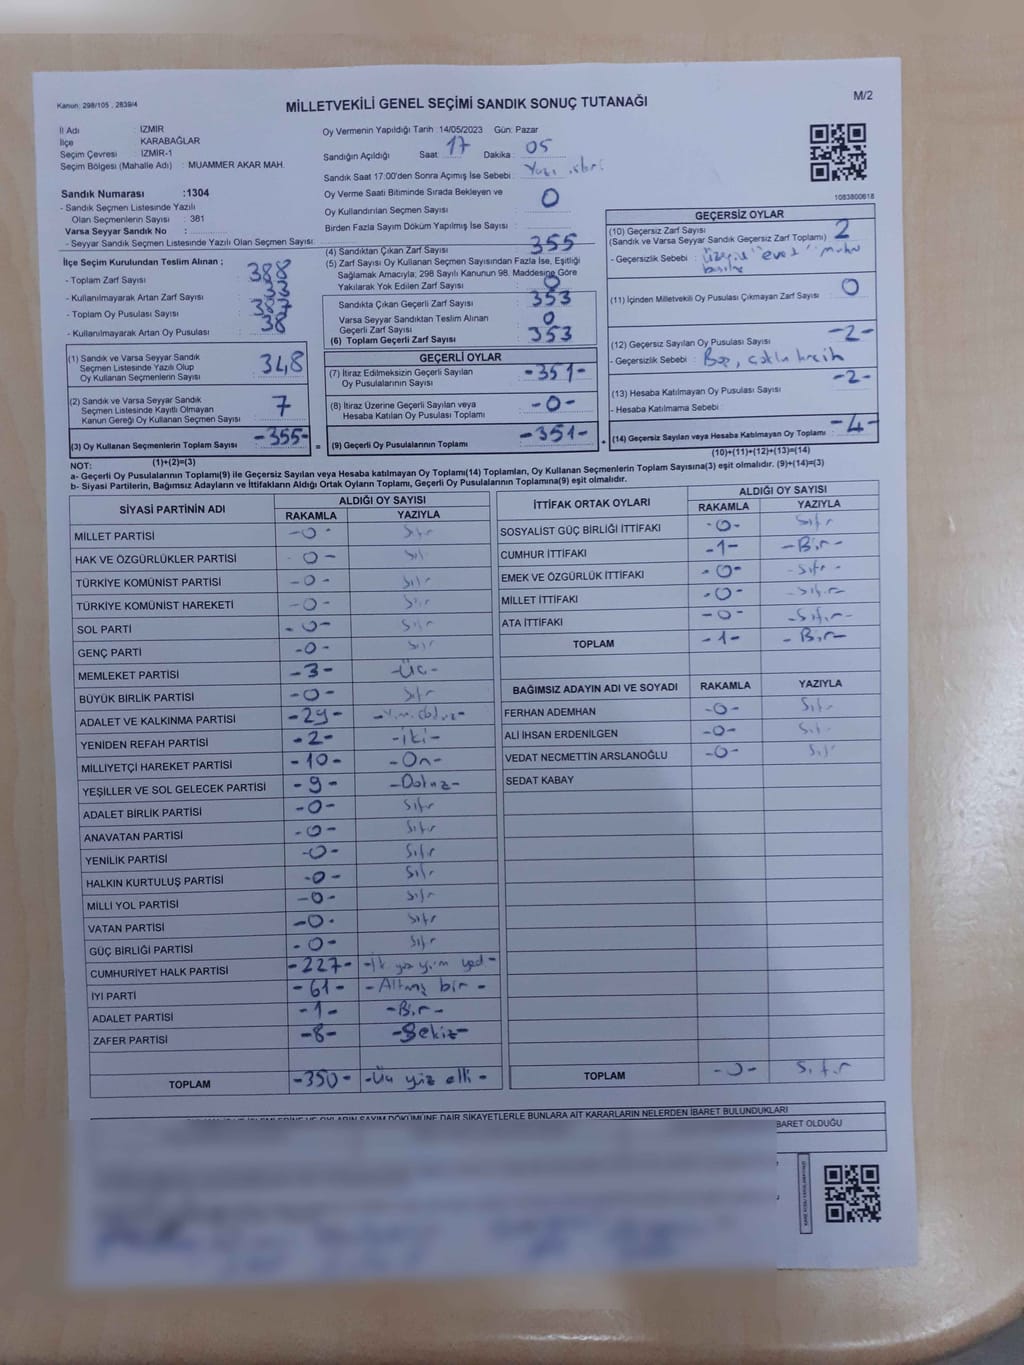 Kanun: 298/105 , 2839/4
M/2
MİLLETVEKİLİ GENEL SEÇİMİ SANDIK SONUÇ TUTANAĞI
İl Adı : İZMİR
İlçe : KARABAĞLAR
Seçim Çevresi : İZMİR-1
Seçim Bölgesi (Mahalle Adı) : MUAMMER AKAR MAH.
Sandık Numarası :1304
- Sandık Seçmen Listesinde Yazılı
Olan Seçmenlerin Sayısı : 381
Varsa Seyyar Sandık No :
- Seyyar Sandık Seçmen Listesinde Yazılı Olan Seçmen Sayısı:
Oy Vermenin Yapıldığı Tarih :14/05/2023 Gün: Pazar
Sandığın Açıldığı Saat 17 Dakika : 05
Sandık Saat 17:00'den Sonra Açılmış İse Sebebi :
Oy Verme Saati Bitiminde Sırada Bekleyen ve
Oy Kullandırılan Seçmen Sayısı : 0
Birden Fazla Sayım Döküm Yapılmış İse Sayısı :
1083800618
İlçe Seçim Kurulundan Teslim Alınan ;
- Toplam Zarf Sayısı : 388
- Kullanılmayarak Artan Zarf Sayısı : 33
- Toplam Oy Pusulası Sayısı : 387
- Kullanılmayarak Artan Oy Pusulası : 38
(1) Sandık ve Varsa Seyyar Sandık
Seçmen Listesinde Yazılı Olup
Oy Kullanan Seçmenlerin Sayısı : 348
(2) Sandık ve Varsa Seyyar Sandık
Seçmen Listesinde Kayıtlı Olmayan
Kanun Gereği Oy Kullanan Seçmen Sayısı : 7
(3) Oy Kullanan Seçmenlerin Toplam Sayısı -355-
(1)+(2)=(3)
(4) Sandıktan Çıkan Zarf Sayısı : 355
(5) Zarf Sayısı Oy Kullanan Seçmen Sayısından Fazla İse, Eşitliği
Sağlamak Amacıyla; 298 Sayılı Kanunun 98. Maddesine Göre
Yakılarak Yok Edilen Zarf Sayısı : 0
Sandıkta Çıkan Geçerli Zarf Sayısı : 353
Varsa Seyyar Sandıktan Teslim Alınan
Geçerli Zarf Sayısı : 0
(6) Toplam Geçerli Zarf Sayısı : 353
GEÇERLİ OYLAR
(7) İtiraz Edilmeksizin Geçerli Sayılan
Oy Pusulalarının Sayısı : -351-
(8) İtiraz Üzerine Geçerli Sayılan veya
Hesaba Katılan Oy Pusulası Toplamı : -0-
= (9) Geçerli Oy Pusulalarının Toplamı : -351-
GEÇERSİZ OYLAR
(10) Geçersiz Zarf Sayısı : 2
(Sandık ve Varsa Seyyar Sandık Geçersiz Zarf Toplamı)
- Geçersizlik Sebebi : üzerine "evet"
(11) İçinden Milletvekili Oy Pusulası Çıkmayan Zarf Sayısı : 0
(12) Geçersiz Sayılan Oy Pusulası Sayısı : -2-
- Geçersizlik Sebebi : Boş,
(13) Hesaba Katılmayan Oy Pusulası Sayısı : -2-
- Hesaba Katılmama Sebebi :
+ (14) Geçersiz Sayılan veya Hesaba Katılmayan Oy Toplamı : -4-
(10)+(11)+(12)+(13)=(14)
NOT:
a- Geçerli Oy Pusulalarının Toplamı(9) ile Geçersiz Sayılan veya Hesaba katılmayan Oy Toplamı(14) Toplamları, Oy Kullanan Seçmenlerin Toplam Sayısına(3) eşit olmalıdır. (9)+(14)=(3)
b- Siyasi Partilerin, Bağımsız Adayların ve İttifakların Aldığı Ortak Oyların Toplamı, Geçerli Oy Pusulalarının Toplamına(9) eşit olmalıdır.
SİYASİ PARTİNİN ADI ALDIĞI OY SAYISI
RAKAMLA YAZIYLA
MİLLET PARTİSİ -0- Sıfır
HAK VE ÖZGÜRLÜKLER PARTİSİ -0- Sıfır
TÜRKİYE KOMÜNİST PARTİSİ -0- Sıfır
TÜRKİYE KOMÜNİST HAREKETİ -0- Sıfır
SOL PARTİ -0- Sıfır
GENÇ PARTİ -0- Sıfır
MEMLEKET PARTİSİ -3- -Üç-
BÜYÜK BİRLİK PARTİSİ -0- Sıfır
ADALET VE KALKINMA PARTİSİ -29- -Yirmi dokuz-
YENİDEN REFAH PARTİSİ -2- -iki-
MİLLİYETÇİ HAREKET PARTİSİ -10- -On-
YEŞİLLER VE SOL GELECEK PARTİSİ -9- -Dokuz-
ADALET BİRLİK PARTİSİ -0- Sıfır
ANAVATAN PARTİSİ -0- Sıfır
YENİLİK PARTİSİ -0- Sıfır
HALKIN KURTULUŞ PARTİSİ -0- Sıfır
MİLLİ YOL PARTİSİ -0- Sıfır
VATAN PARTİSİ -0- Sıfır
GÜÇ BİRLİĞİ PARTİSİ -0- Sıfır
CUMHURİYET HALK PARTİSİ -227- -İki yüz yirmi yedi-
İYİ PARTİ -61- -Altmış bir-
ADALET PARTİSİ -1- -Bir-
ZAFER PARTİSİ -8- -Sekiz-
TOPLAM -350- -Üç yüz elli-
İTTİFAK ORTAK OYLARI ALDIĞI OY SAYISI
RAKAMLA YAZIYLA
SOSYALİST GÜÇ BİRLİĞİ İTTİFAKI -0- Sıfır
CUMHUR İTTİFAKI -1- -Bir-
EMEK VE ÖZGÜRLÜK İTTİFAKI -0- -Sıfır-
MİLLET İTTİFAKI -0- -Sıfır-
ATA İTTİFAKI -0- -Sıfır-
TOPLAM -1- -Bir-
BAĞIMSIZ ADAYIN ADI VE SOYADI RAKAMLA YAZIYLA
FERHAN ADEMHAN -0- Sıfır
ALİ İHSAN ERDENİLGEN -0- Sıfır
VEDAT NECMETTİN ARSLANOĞLU -0- Sıfır
SEDAT KABAY
TOPLAM -0- Sıfır
DÖKÜMÜNE DAİR ŞİKAYETLERLE BUNLARA AİT KARARLARIN NELERDEN İBARET BULUNDUKLARI
BARET OLDUĞU